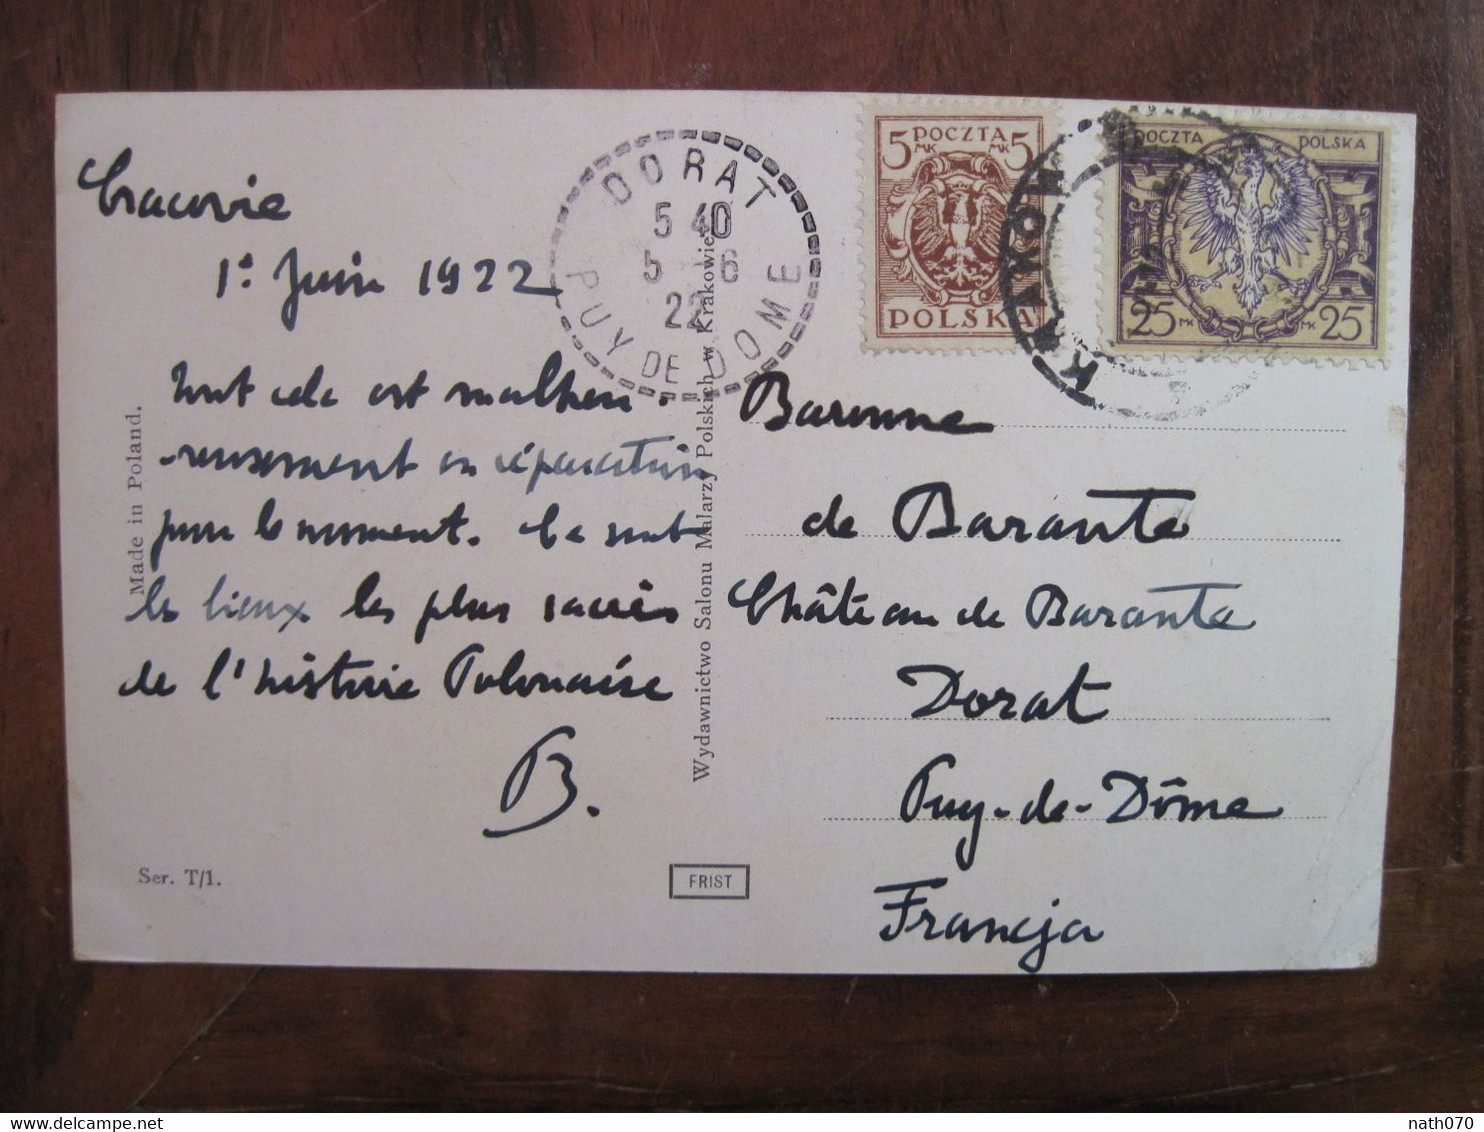 Cracovie
1er Juin 1922
Tout cela est malheu-
-reusement en réparation
pour le moment. Ce sont
les lieux les plus sacrés
de l'histoire Polonaise
B.
Made in Poland.
Ser. T/1.
Wydawnictwo Salonu Malarzy Polskich w Krakowie.
FRIST
DORAT
5 40
5 6
22
PUY DE DOME
5 POCZTA 5
MK MK
POLSKA
KRAKÓW
POCZTA POLSKA
25 MK MK 25
Baronne
de Barante
Château de Barante
Dorat
Puy-de-Dôme
Francja
delcampe.net
nath070